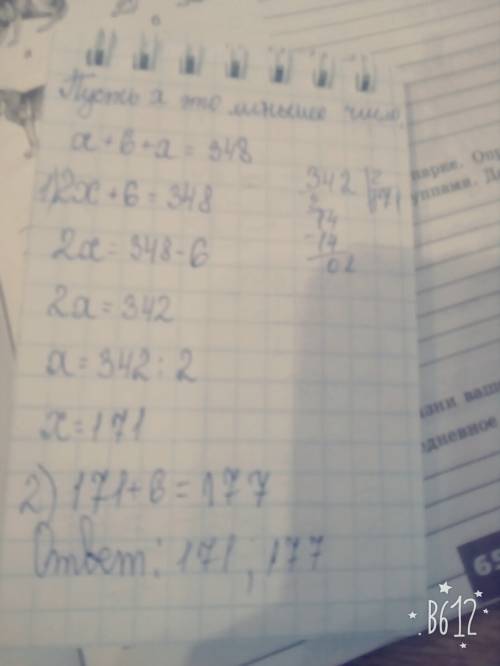 Пусть х это меньшее число.
х + 6 + х = 348
1) 2х + 6 = 348
2х = 348 - 6
2х = 342
х = 342 : 2
х = 171
2) 171 + 6 = 177
Ответ: 171 ; 177
342 2
2 171
14
-14
02
парке. Опр
уппами. Д
зни ваши
едневное
65
B612